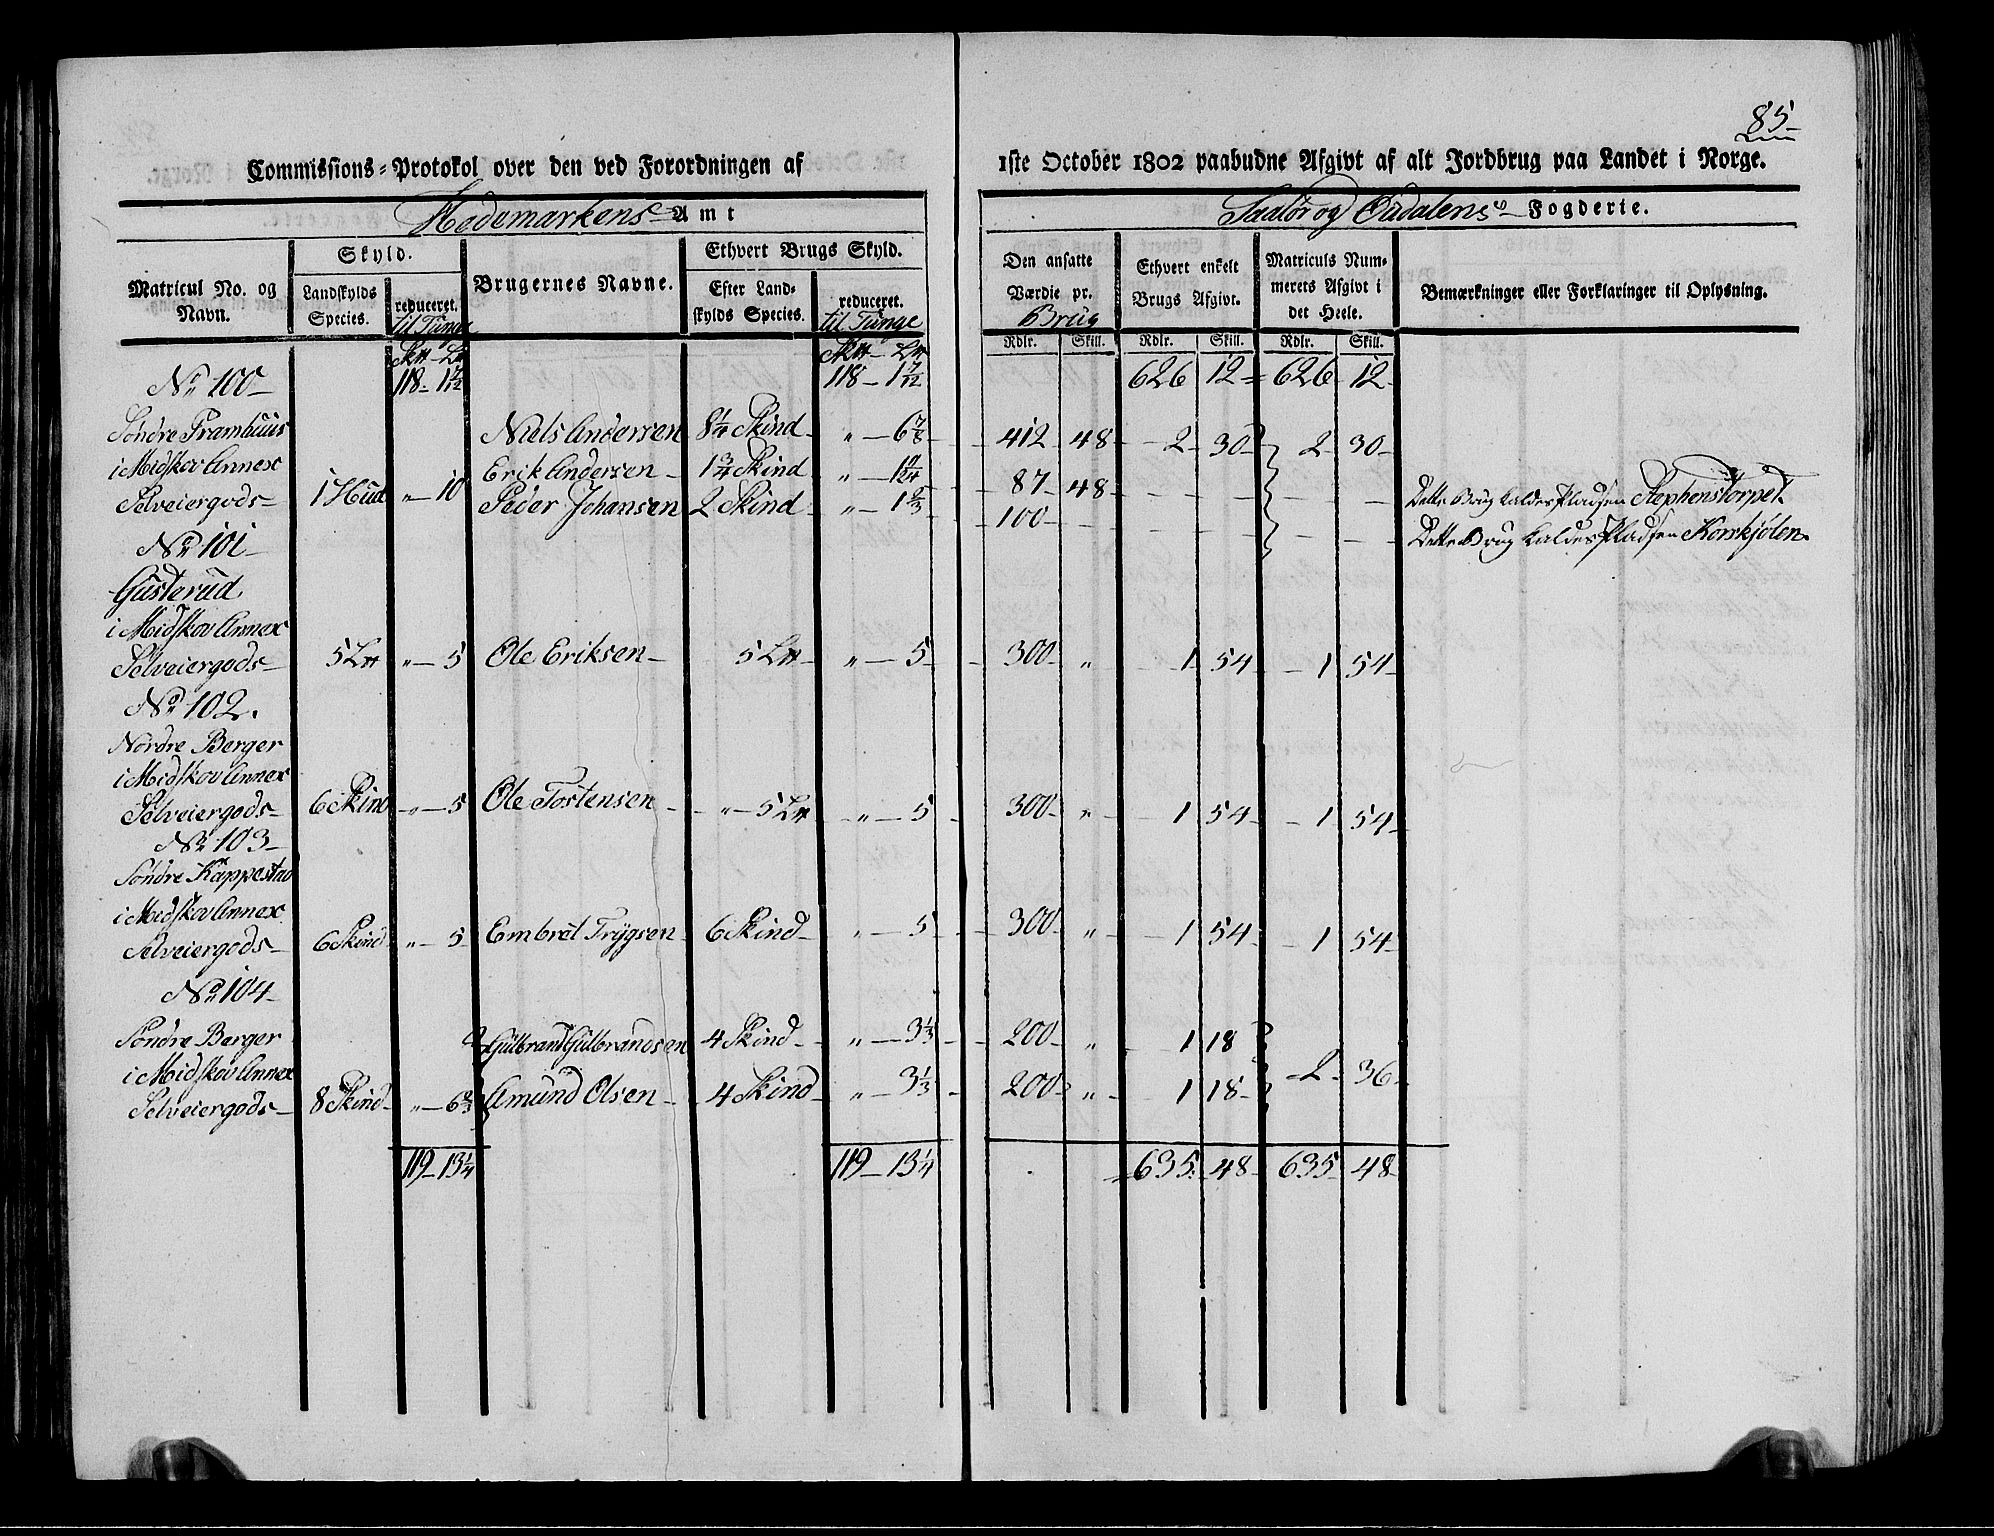 85
Commissions-Protokol over den ved Forordningen af 1ste October 1802 paabudne Afgivt af alt Jordbrug paa Landet i Norge.
Hedemarkens Amt
Saalør og Oudalens Fogderie.
Matricul No. og Navn.
Skyld.
Landskylds Species.
reduceret. til Tunge
Brugernes Navne.
Ethvert Brugs Skyld.
Efter Landskylds Species.
reduceret. til Tunge
Den ansatte Værdie pr. Brug
Ethvert enkelt Brugs Afgivt.
Matriculs Nummerets Afgivt i det Heele.
Bemærkninger eller Forklaringer til Oplysning.
Rdlr. Skill. Rdlr. Skill. Rdlr. Skill.
118 - 1 7/12 118 - 1 7/12 626 12 626 12
No 100
Søndre Framhuus Niels Andersen 8 1/4 Skind „ - 6 7/8 412 48 2 30 2 30
i Midskov Annex Erik Andersen 1 3/4 Skind „ - 1 11/24 87 48
Selveiergods 1 Hud „ - 10 Peder Johansen 2 Skind „ - 1 2/3 100
Dette Brug kaldes Pladsen Stephenstorpet
Dette Brug kaldes Pladsen Korskjølen
No 101
Gusterud
i Midskov Annex
Selveiergods 5 L℔ „ - 5 Ole Eriksen 5 L℔ „ - 5 300 „ 1 54 1 54
No 102.
Nordre Berger
i Midskov Annex
Selveiergods 6 Skind „ - 5 Ole Tostensen „ - 5 L℔ „ - 5 300 „ 1 54 1 54
No 103
Søndre Kappestad
i Midskov Annex
Selveiergods 6 Skind „ - 5 Embret Trygsen 6 Skind „ - 5 300 „ 1 54 1 54
No 104
Søndre Berger Gulbrand Gulbrandsen 4 Skind „ - 3 1/3 200 „ 1 18
i Midskov Annex 2 36
Selveiergods 8 Skind „ - 6 2/3 Amund Olsen 4 Skind „ - 3 1/3 200 „ 1 18
119 - 13 1/4 119 - 13 1/4 635 48 635 48